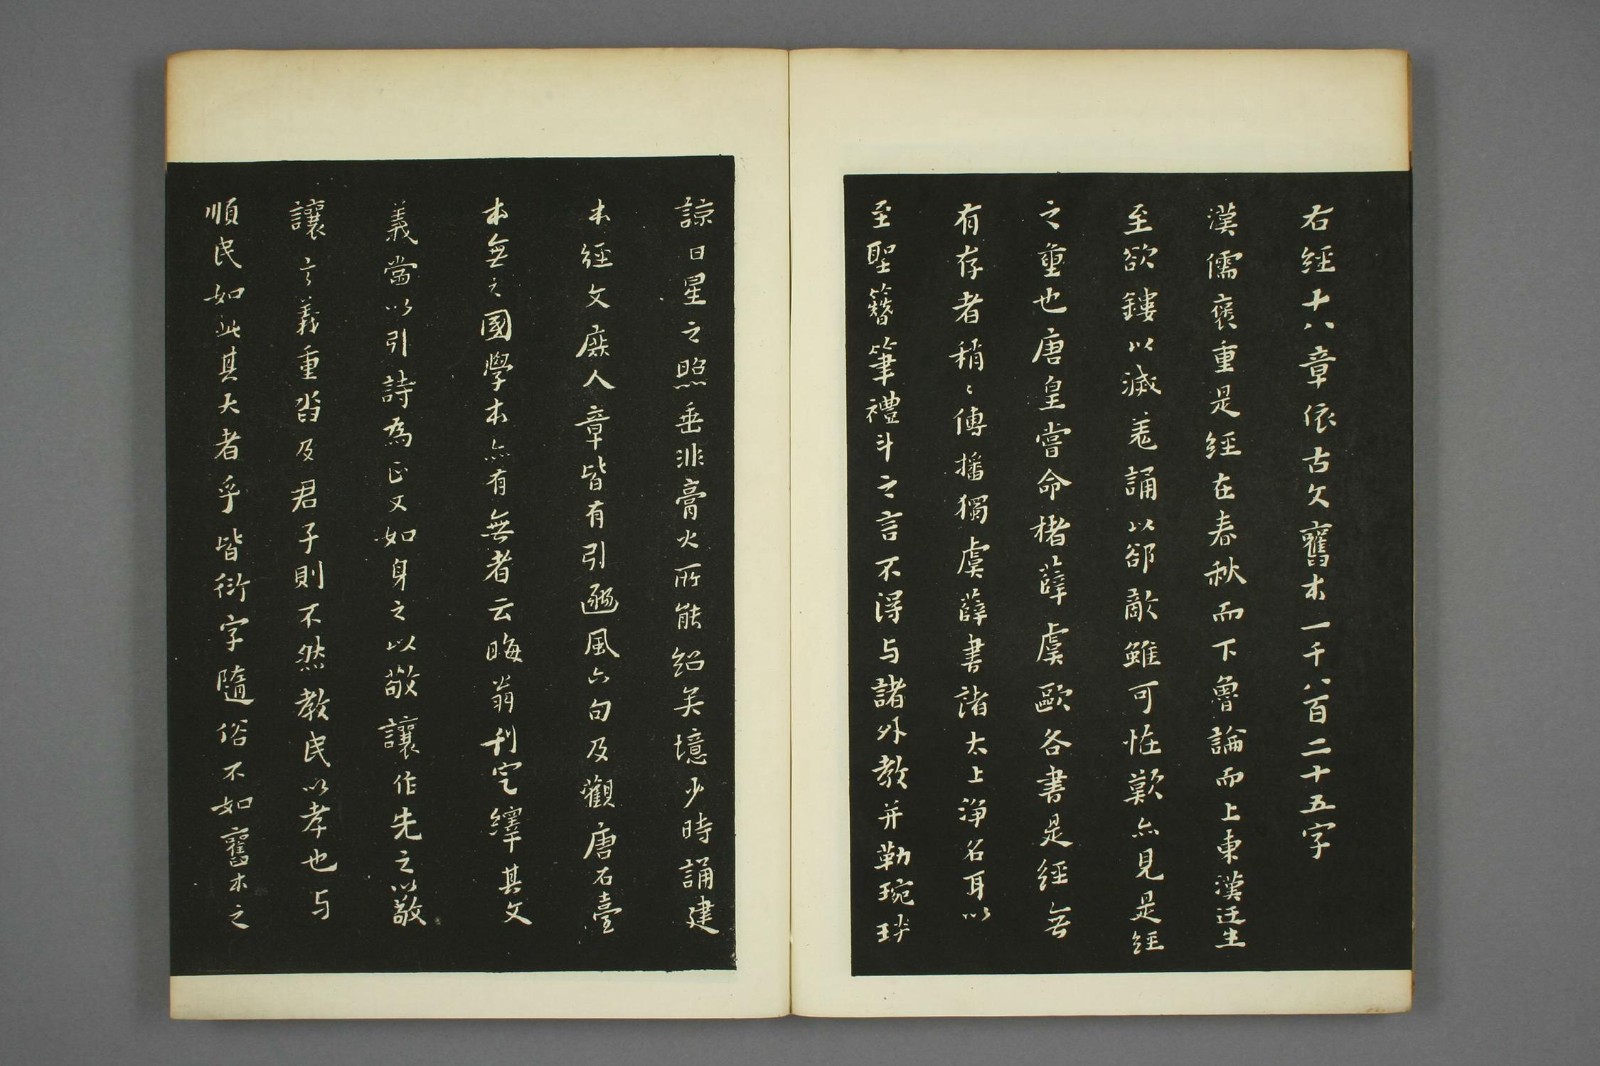 右經十八章依古文舊本一千八百二十五字
漢儒褒重是經在春秋而下魯論而上東漢迂生
至欲鏤以滅羗誦以郤敵雖可恠歎亦見是經
之重也唐皇嘗命楮薛虞歐各書是經無
有存者稍〻傳播獨虞薛書諸太上淨名耳以
至聖簪筆禮斗之言不得与諸外教并勒琬琰
諒日星之照垂非膏火所能紹矣境少時誦建
本經文庶人章皆有引豳風六句及觀唐石臺
本無之國學本亦有無者云晦翁刊定繹其文
義當以引詩為正又如身之以敬讓作先之以敬
讓言義重沓及君子則不然教民以孝也与
順民如此其大者乎皆衍字隨俗不如舊本之